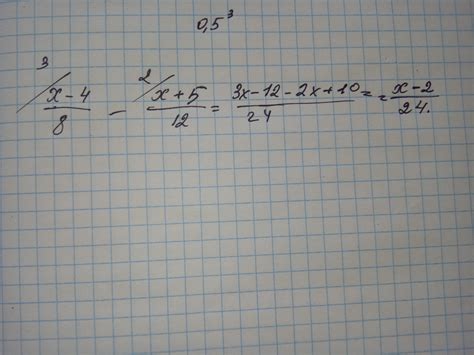 0,5³
³/ (x-4)/8 - ²/ (x+5)/12 = (3x-12-2x+10)/24 = = (x-2)/24.